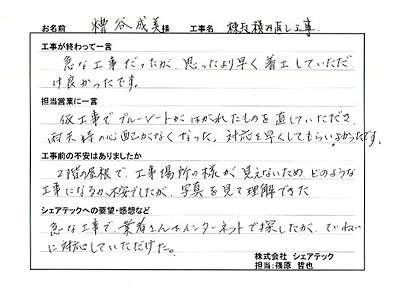 お名前 糟谷成美様 工事名 棟瓦積み直し工事
工事が終わって一言
急な工事だったが、思ったより早く着工していただけ
け良かったです。
担当営業に一言
仮工事でブルーシートがはがれたものを直していただき、
雨天時の心配がなくなった。対応を早くしてもらいよかったです。
工事前の不安はありましたか
2階の屋根で、工事場所の様が見えないため、どのような
工事になるか不安でしたが、写真を見て理解できた
シェアテックへの要望・感想など
急な工事で、業者さんをインターネットで探したが、ていねい
に対応していただけた。
株式会社 シェアテック
担当:篠原 哲也